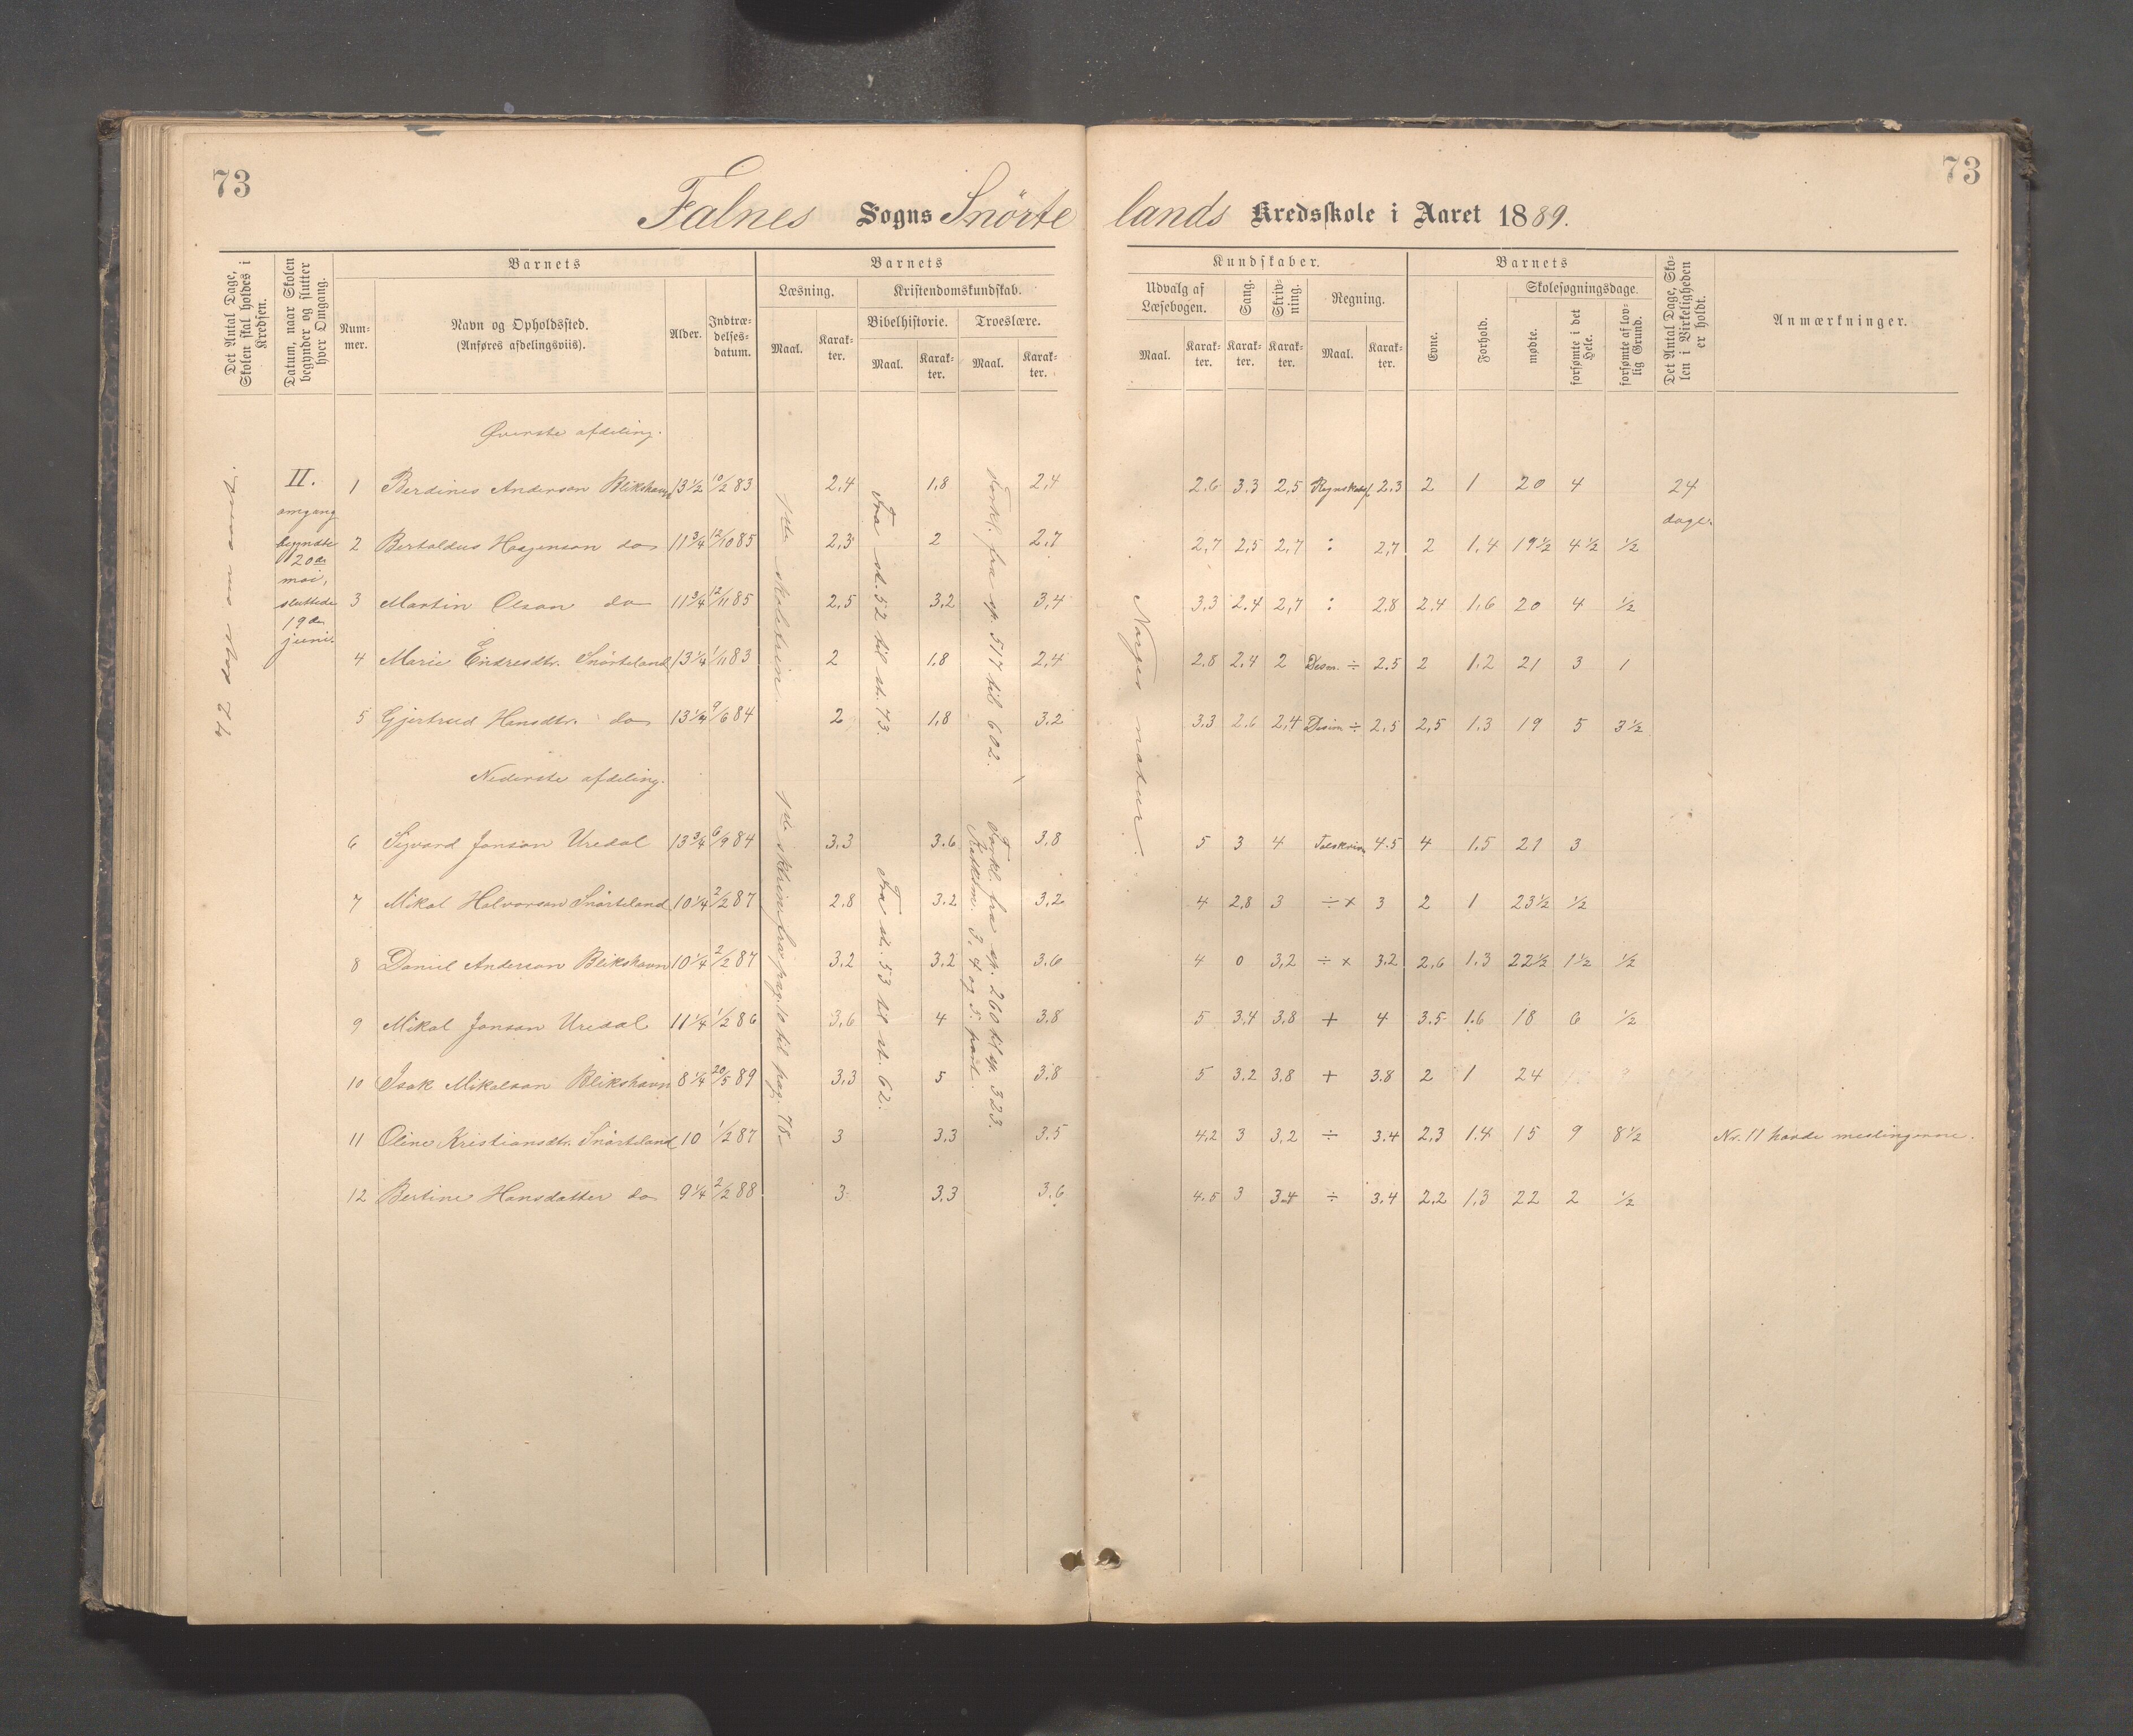 73
73
Falnes Sogns Snörte lands Kredsskole i Aaret 1889.
Det Antal Dage, Skolen skal holdes i Kredsen.
Datum, naar Skolen begynder og slutter hver Omgang.
Barnets
Num-
mer.
Navn og Opholdssted.
(Anføres afdelingsviis).
Alder.
Indtræ-
delses-
datum.
Barnets
Læsning.
Maal.
Karak-
ter.
Kristendomskundskab.
Bibelhistorie.
Maal.
Karak-
ter.
Troeslære.
Maal.
Karak-
ter.
Kundskaber.
Udvalg af
Læsebogen.
Maal.
Karak-
ter.
Sang.
Karak-
ter.
Skriv-
ning.
Karak-
ter.
Regning.
Maal.
Karak-
ter.
Barnets
Evne.
Forhold.
Skolesøgningsdage.
mødte.
forsømte i det Hele.
forsømte af lov-
lig Grund.
Det Antal Dage, Sko-
len i Virkeligheden
er holdt.
Anmærkninger.
Øverste afdeling.
II.
omgang
begyndte
20de
mai,
sluttede
19de
juni.
1 Berdines Anderson Blikshavn 13 1/2 10/2 83 2,4 1,8 2,4 2.6 3.3 2,5 2.3 2 1 20 4 24
dage.
2 Bertoldus Haagenson do 11 3/4 12/10 85 2,3 2 2,7 2,7 2,5 2,7 : 2,7 2 1,4 19 1/2 4 1/2 1/2
3 Martin Olson do 11 3/4 12/11 85 2,5 3,2 3,4 3,3 2.4 2,7 : 2,8 2.4 1,6 20 4 1/2
4 Marie Endresdtr. Snörteland 13 1/4 1/11 83 2 1,8 2,4 2,8 2,4 2 Desm. ÷ 2.5 2 1,2 21 3 1
5 Gjertrud Hansdtr. do 13 1/4 9/6 84 2 1,8 3,2 3.3 2.6 2,4 Desim ÷ 2,5 2,5 1.3 19 5 3 1/2
1ste skoletrin.
Fra st. 52 til st. 73.
Forkl. fra sp. 517 til 602.
Norges natur.
Nederste afdeling.
6 Sigvard Jonson Uredal 13 3/4 6/9 84 3,3 3.6 3,8 5 3 4 4.5 4 1.5 21 3
7 Mikal Halvorson Snörteland 10 1/4 2/2 87 2,8 3.2 3,2 4 2,8 3 ÷ × 3 2 1 23 1/2 1/2
8 Daniel Anderson Blikshavn 10 1/4 2/2 87 3,2 3,2 3.6 4 0 3,2 ÷ × 3.2 2,6 1.3 22 1/2 1 1/2 1/2
9 Mikal Jonson Uredal 11 1/4 1/2 86 3,6 4 3,8 5 3,4 3,8 + 4 3.5 1.6 18 6 1/2
10 Isak Mikalson Blikshavn 8 1/4 20/5 89 3,3 5 3.8 5 3.2 3,8 + 3.8 2 1 24
11 Oline Kristiansdtr. Snörteland 10 1/2 87 3 3,3 3.5 4.2 3 3,2 ÷ 3.4 2,3 1.4 15 9 8 1/2 Nr. 11 havde meslingerne.
12 Bertine Hansdatter do 9 1/4 2/2 88 3 3,3 3.6 4.5 3 3.4 ÷ 3,4 2,2 1,3 22 2 1/2
pag. 10 til pag. 78.
Fra st. 53 til st. 62.
Forkl. fra sp. 260 til sp. 323.
3, 4 og 5. part.